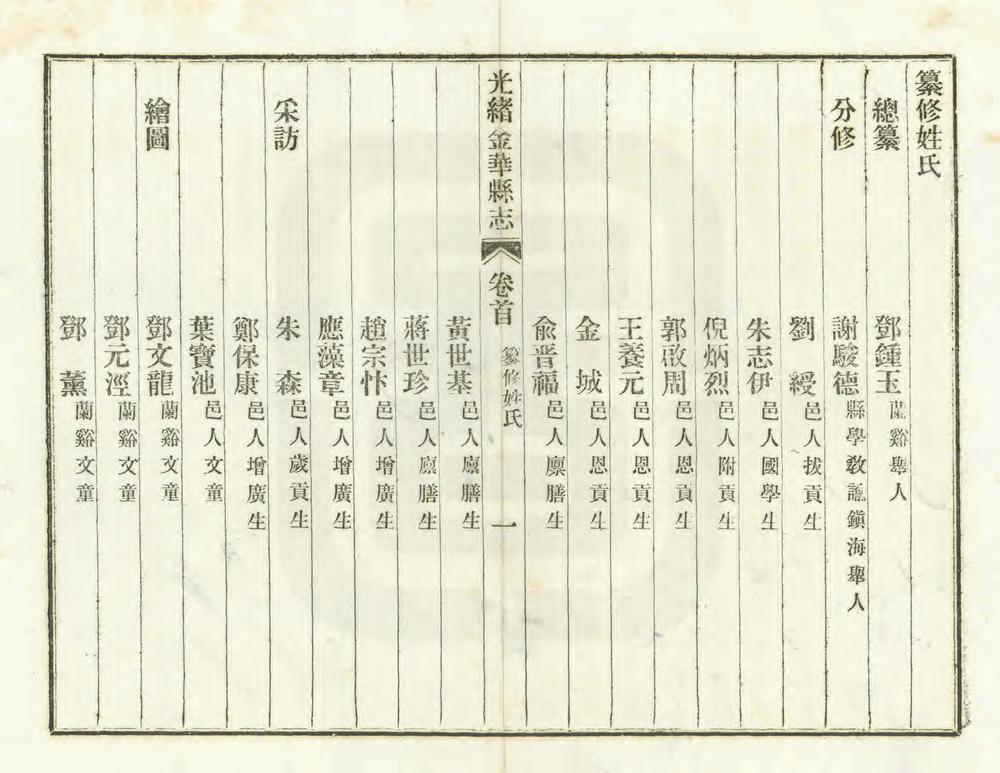 纂修姓氏
總纂 鄧鍾玉 蘭谿舉人
分修 謝駿德 縣學教諭鎮海舉人
劉綬 邑人拔貢生
朱志伊 邑人國學生
倪炳烈 邑人附貢生
郭啟周 邑人恩貢生
王養元 邑人恩貢生
金城 邑人恩貢生
俞晉福 邑人廩膳生
光緒金華縣志 卷首 纂修姓氏 一
黃世基 邑人廩膳生
蔣世珍 邑人廩膳生
趙宗忭 邑人增廣生
應藻章 邑人增廣生
采訪 朱森 邑人歲貢生
鄭保康 邑人增廣生
葉寶池 邑人文童
繪圖 鄧文龍 蘭谿文童
鄧元涇 蘭谿文童
鄧薰 蘭谿文童